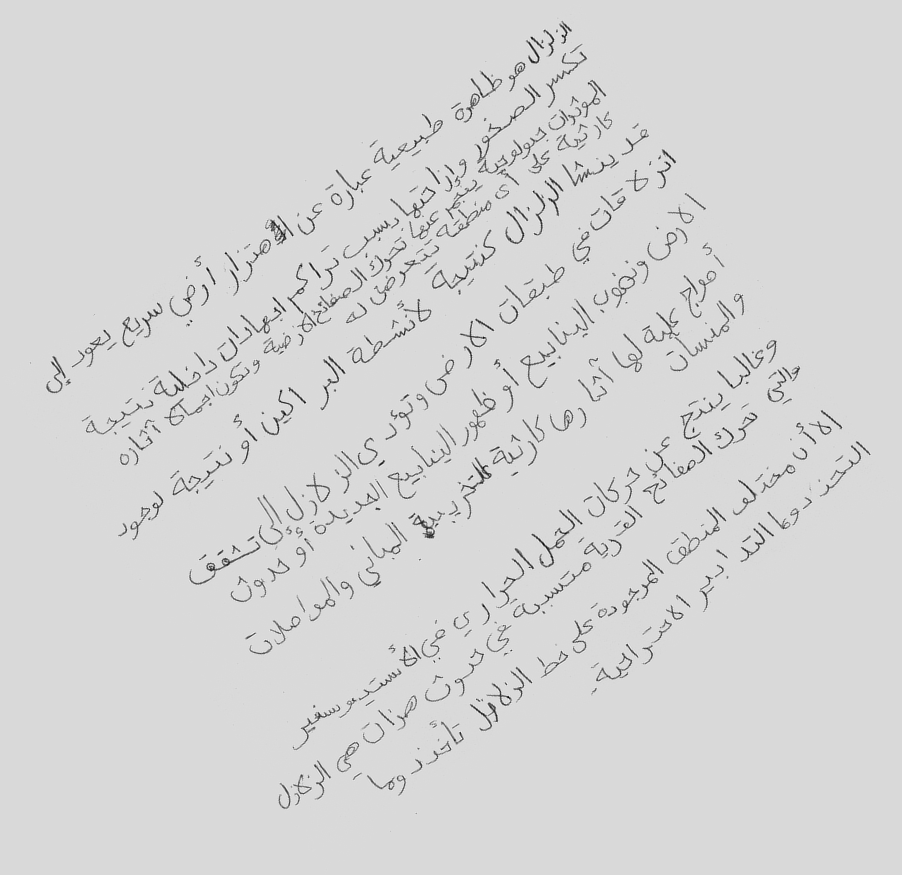 الزلزال هو ظاهرة طبيعية عبارة عن الاهتزاز أرضي سريع يعود إلى
تكسر الصخور وإزاحتها بسبب تراكم اجهادات داخلية نتيجة
المؤثرات جيولوجية ينجم عنها تحرك الصفائح الارضية وتكون اجمالا آثاره
كارثية على أي منطقة تتعرض له
قد ينشا الزلزال كنتيجة لأنشطة البراكين أو نتيجة لوجود
انزلاقات في طبقات الارض وتؤدي الزلازل إلى تشقق
الارض ونضوب الينابيع أو ظهور الينابيع الجديدة أو حدوث
أمواج عالية لها آثارها كارثية التخريبية المباني والمواصلات
والمنشآت
وغالبا ينتج عن حركات الحمل الحراري في الأستينوسفير
والتي تحرك الصفائح القارية متسببة في حدوث هزات هي الزلازل
الا أن مختلف المنطق الموجودة على خط الزلازل تأخذ دوما
التخذ دوما التدابير الاحترازية.